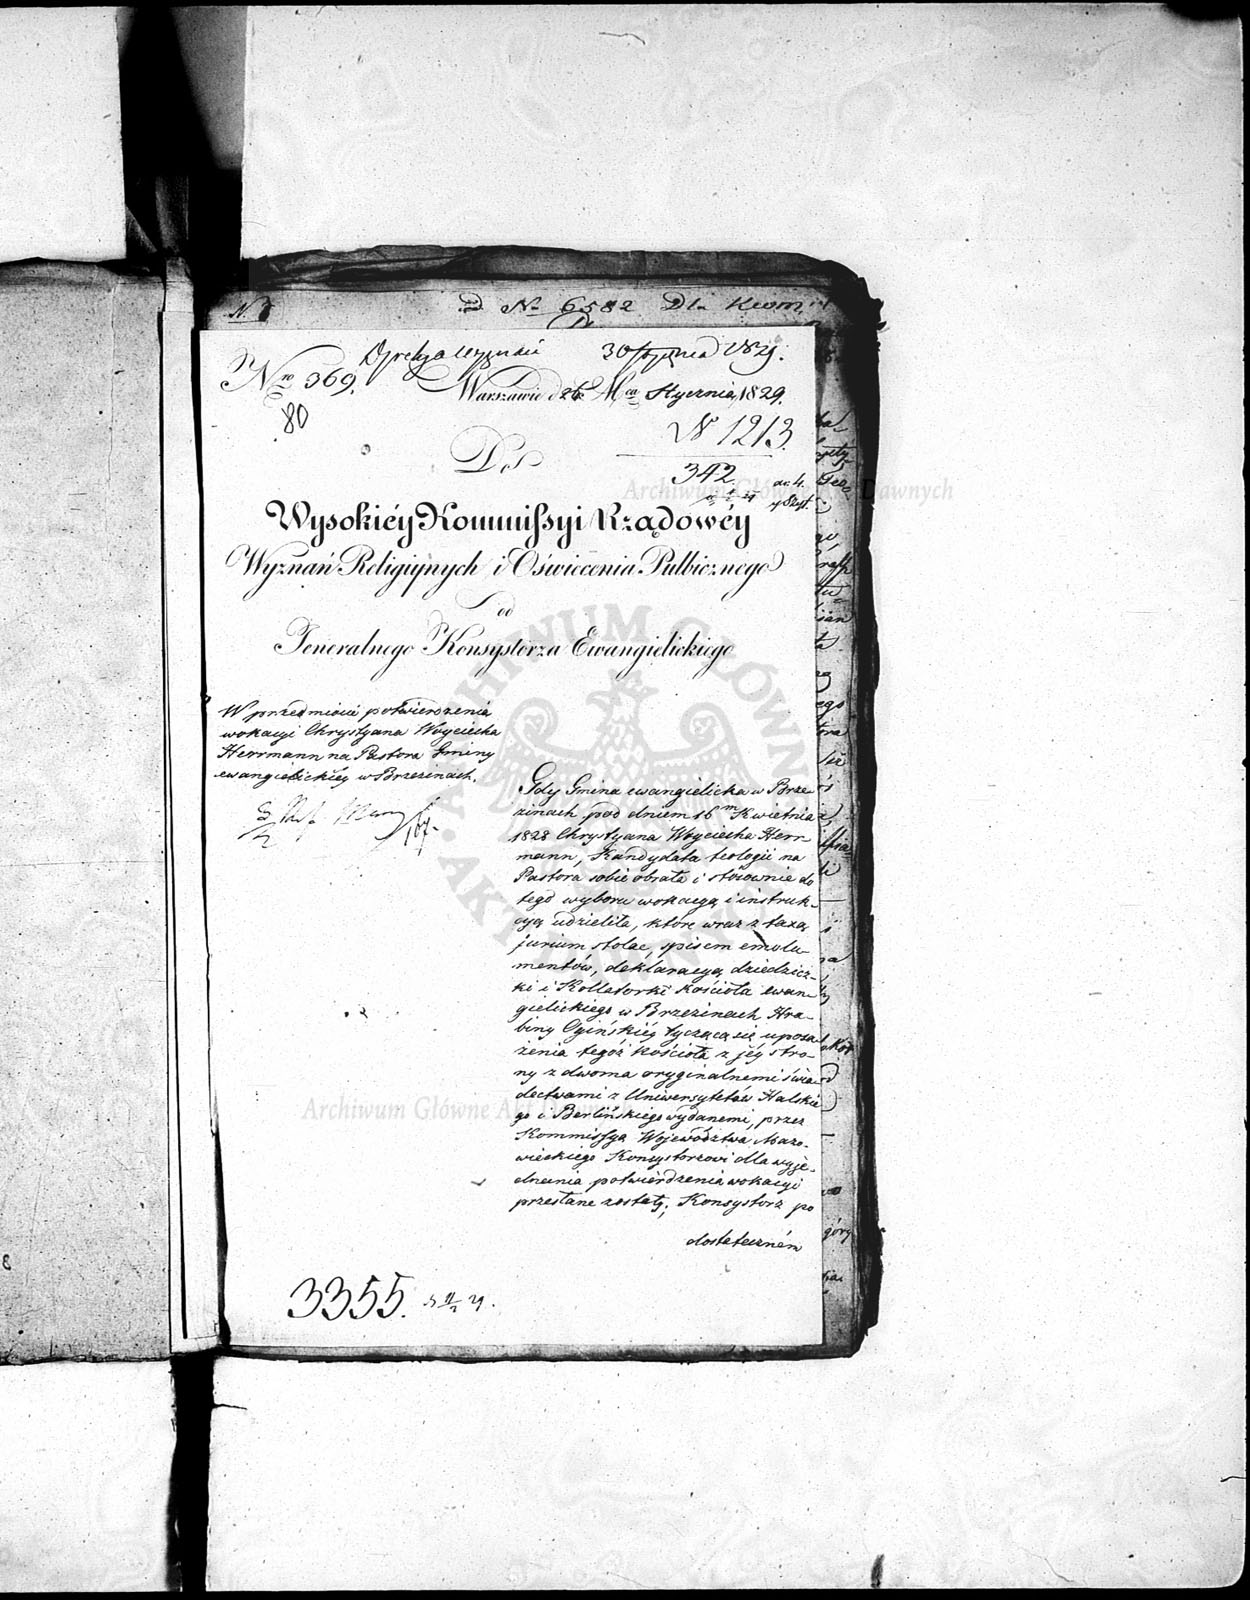 N. 7
N 6582 Dla Kom
Nro 369. 30 Stycznia 1829.
80
Warszawie d 26 Mca Stycznia 1829.
N 1213.
Do
342
Archiwum Główne Akt Dawnych
Wysokiéy Kommissyi Rządowéy
Wyznań Religiynych i Oświecenia Publicznego
od
Jeneralnego Konsystorza Ewangielickiego
W przedmiocie potwierdzenia
wokacyi Chrystyana Woyciecha
Herrmann na Pastora Gminy
ewangielickiéy w Brzezinach.
Gdy Gmina ewangielicka w Brze-
zinach pod dniem 16m Kwietnia
1828 Chrystyana Woyciecha Herr-
mann, Kandydata teologii na
Pastora sobie obrała i stosownie do
tego wyboru wokacyą i instruk-
cyą udzieliła, które wraz z taxą
jurium stolae, spisem emolu-
mentów, deklaracyą dziedzicz-
ki i Kollatorki kościoła ewan-
gielickiego w Brzezinach Hra-
biny Ogińskiéy tyczącą się uposa
żenia tegoż kościoła z jéy stro-
ny z dwoma oryginalnemi świa-
dectwami z Uniwersytetów Halskie
go i Berlińskiego wydanemi, przez
Kommissyą Województwa Mazo-
wieckiego Konsystorzowi dla wyje-
dnania potwierdzenia wokacyi
przesłane zostały; Konsystorz po
dostateczném
Archiwum Główne Akt
ARCHIWUM GŁÓWNE AKT
3355.